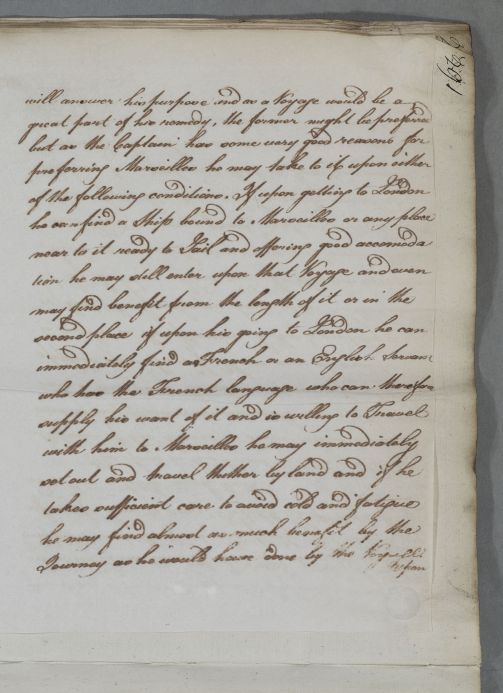 will answer his purpose and as a Voyage would be a
great part of his remedy, the former might be preferred
but as the Captain has some very good reasons for
preferring Marseilles he may take to it upon either
of the following conditions. If upon getting to London
he can find a Ship bound to Marseilles or any place
near to it ready to Sail and offering good accomoda
tion he may still enter upon that Voyage and even
may find benefit from the length of it or in the
second place if upon his going to London he can
immediately find a French or an English Servant
who has the French language who can therefor
supply his want of it and is willing to Travel
with him to Marseilles he may immediately
set out and travel thether by land and if he
takes sufficient care to avoid cold and fatigue
he may find almost as much benefit by the
Journey as he would have done by the